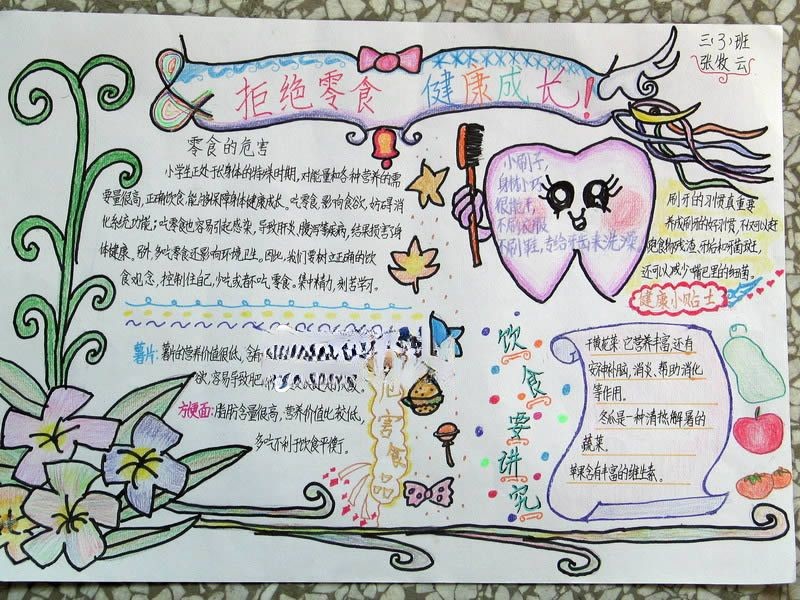 三(3)班
张牧云
拒绝零食 健康成长!
零食的危害
小学生正处于长身体的特殊时期,对能量和各种营养的需
要量很高,正确饮食,能够保障身体健康成长。吃零食,影响食欲,妨碍消
化系统功能;吃零食也容易引起感染,导致肝炎、腹泻等疾病,结果损害了身
体健康。另外,多吃零食还影响环境卫生。因此,我们要树立正确的饮
食观念,控制住自己,少吃或者不吃零食。集中精力,刻苦学习。
薯片:薯片的营养价值很低,含有
欲,容易导致肥
方便面:脂肪含量很高,营养价值比较低,
多吃不利于饮食平衡。
危害食品
小刷子,
身体小巧
很能干,
不刷衣服
不刷鞋,专给牙齿来洗澡
刷牙的习惯真重要
养成刷牙的好习惯,不仅可以赶
跑食物残渣、牙垢和牙菌斑,
还可以减少嘴巴里的细菌。
健康小贴士
饮食要讲究
干黄花菜:它营养丰富,还有
安神补脑,消炎、帮助消化
等作用。
冬瓜是一种清热解暑的
蔬菜。
苹果含有丰富的维生素。